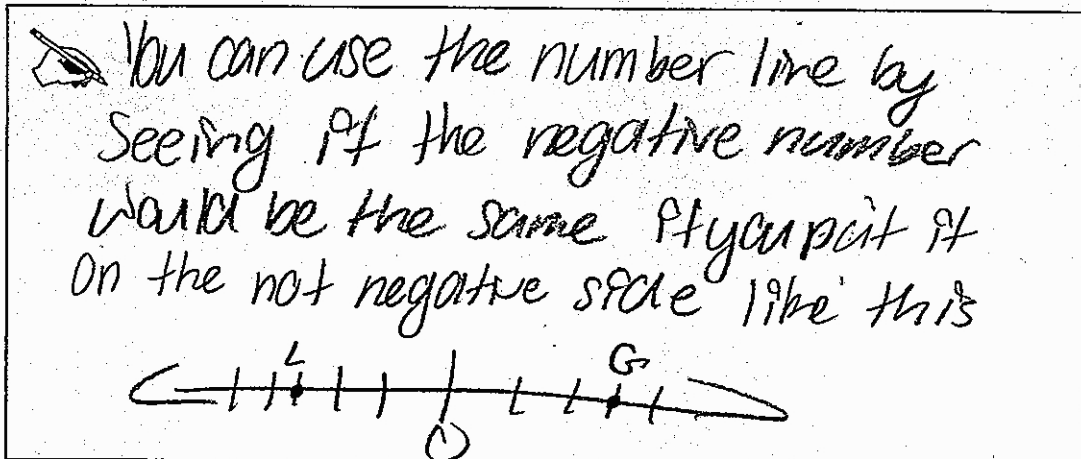 You can use the number line by
seeing if the negative number
would be the same if you put it
on the not negative side like this
L G
0